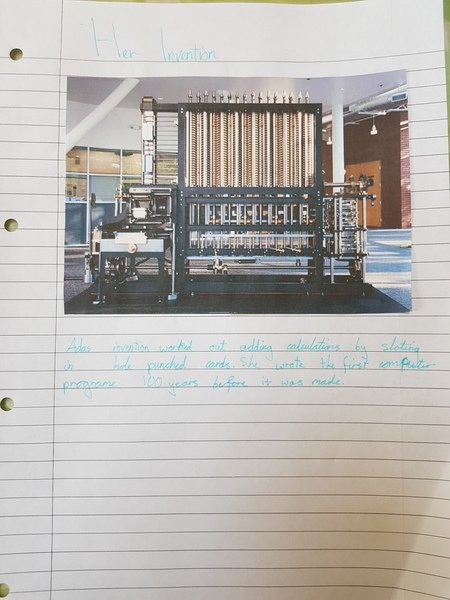 Her Invention
Adas invention worked out adding calculations by sloting
in hole punched cards. She wrote the first computer
programe 100 years before it was made.